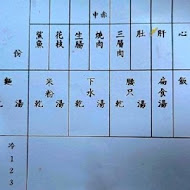 中赤
心
肝
肚
三層肉
燒肉
生腸
花枝
鯊魚
份
飯
扁食湯
腳只
湯
乾
下水
湯
乾
米粉
湯
乾
麵
湯
乾
冷
1
2
3